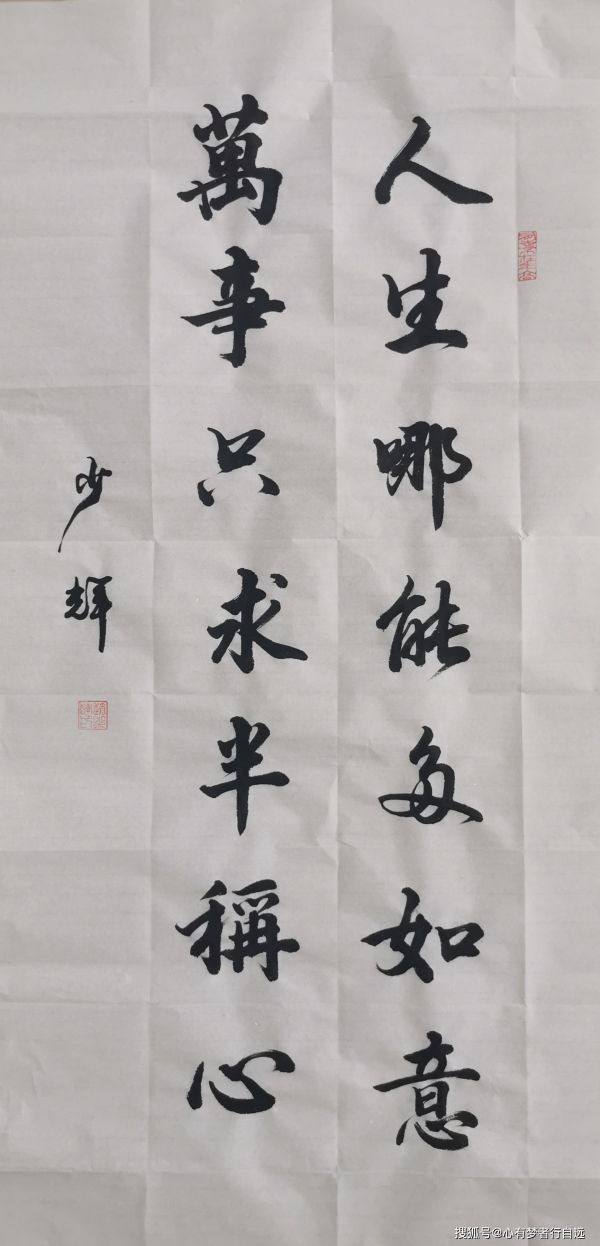 人生哪能多如意
萬事只求半稱心
少輝
搜狐号@心有梦著行自远